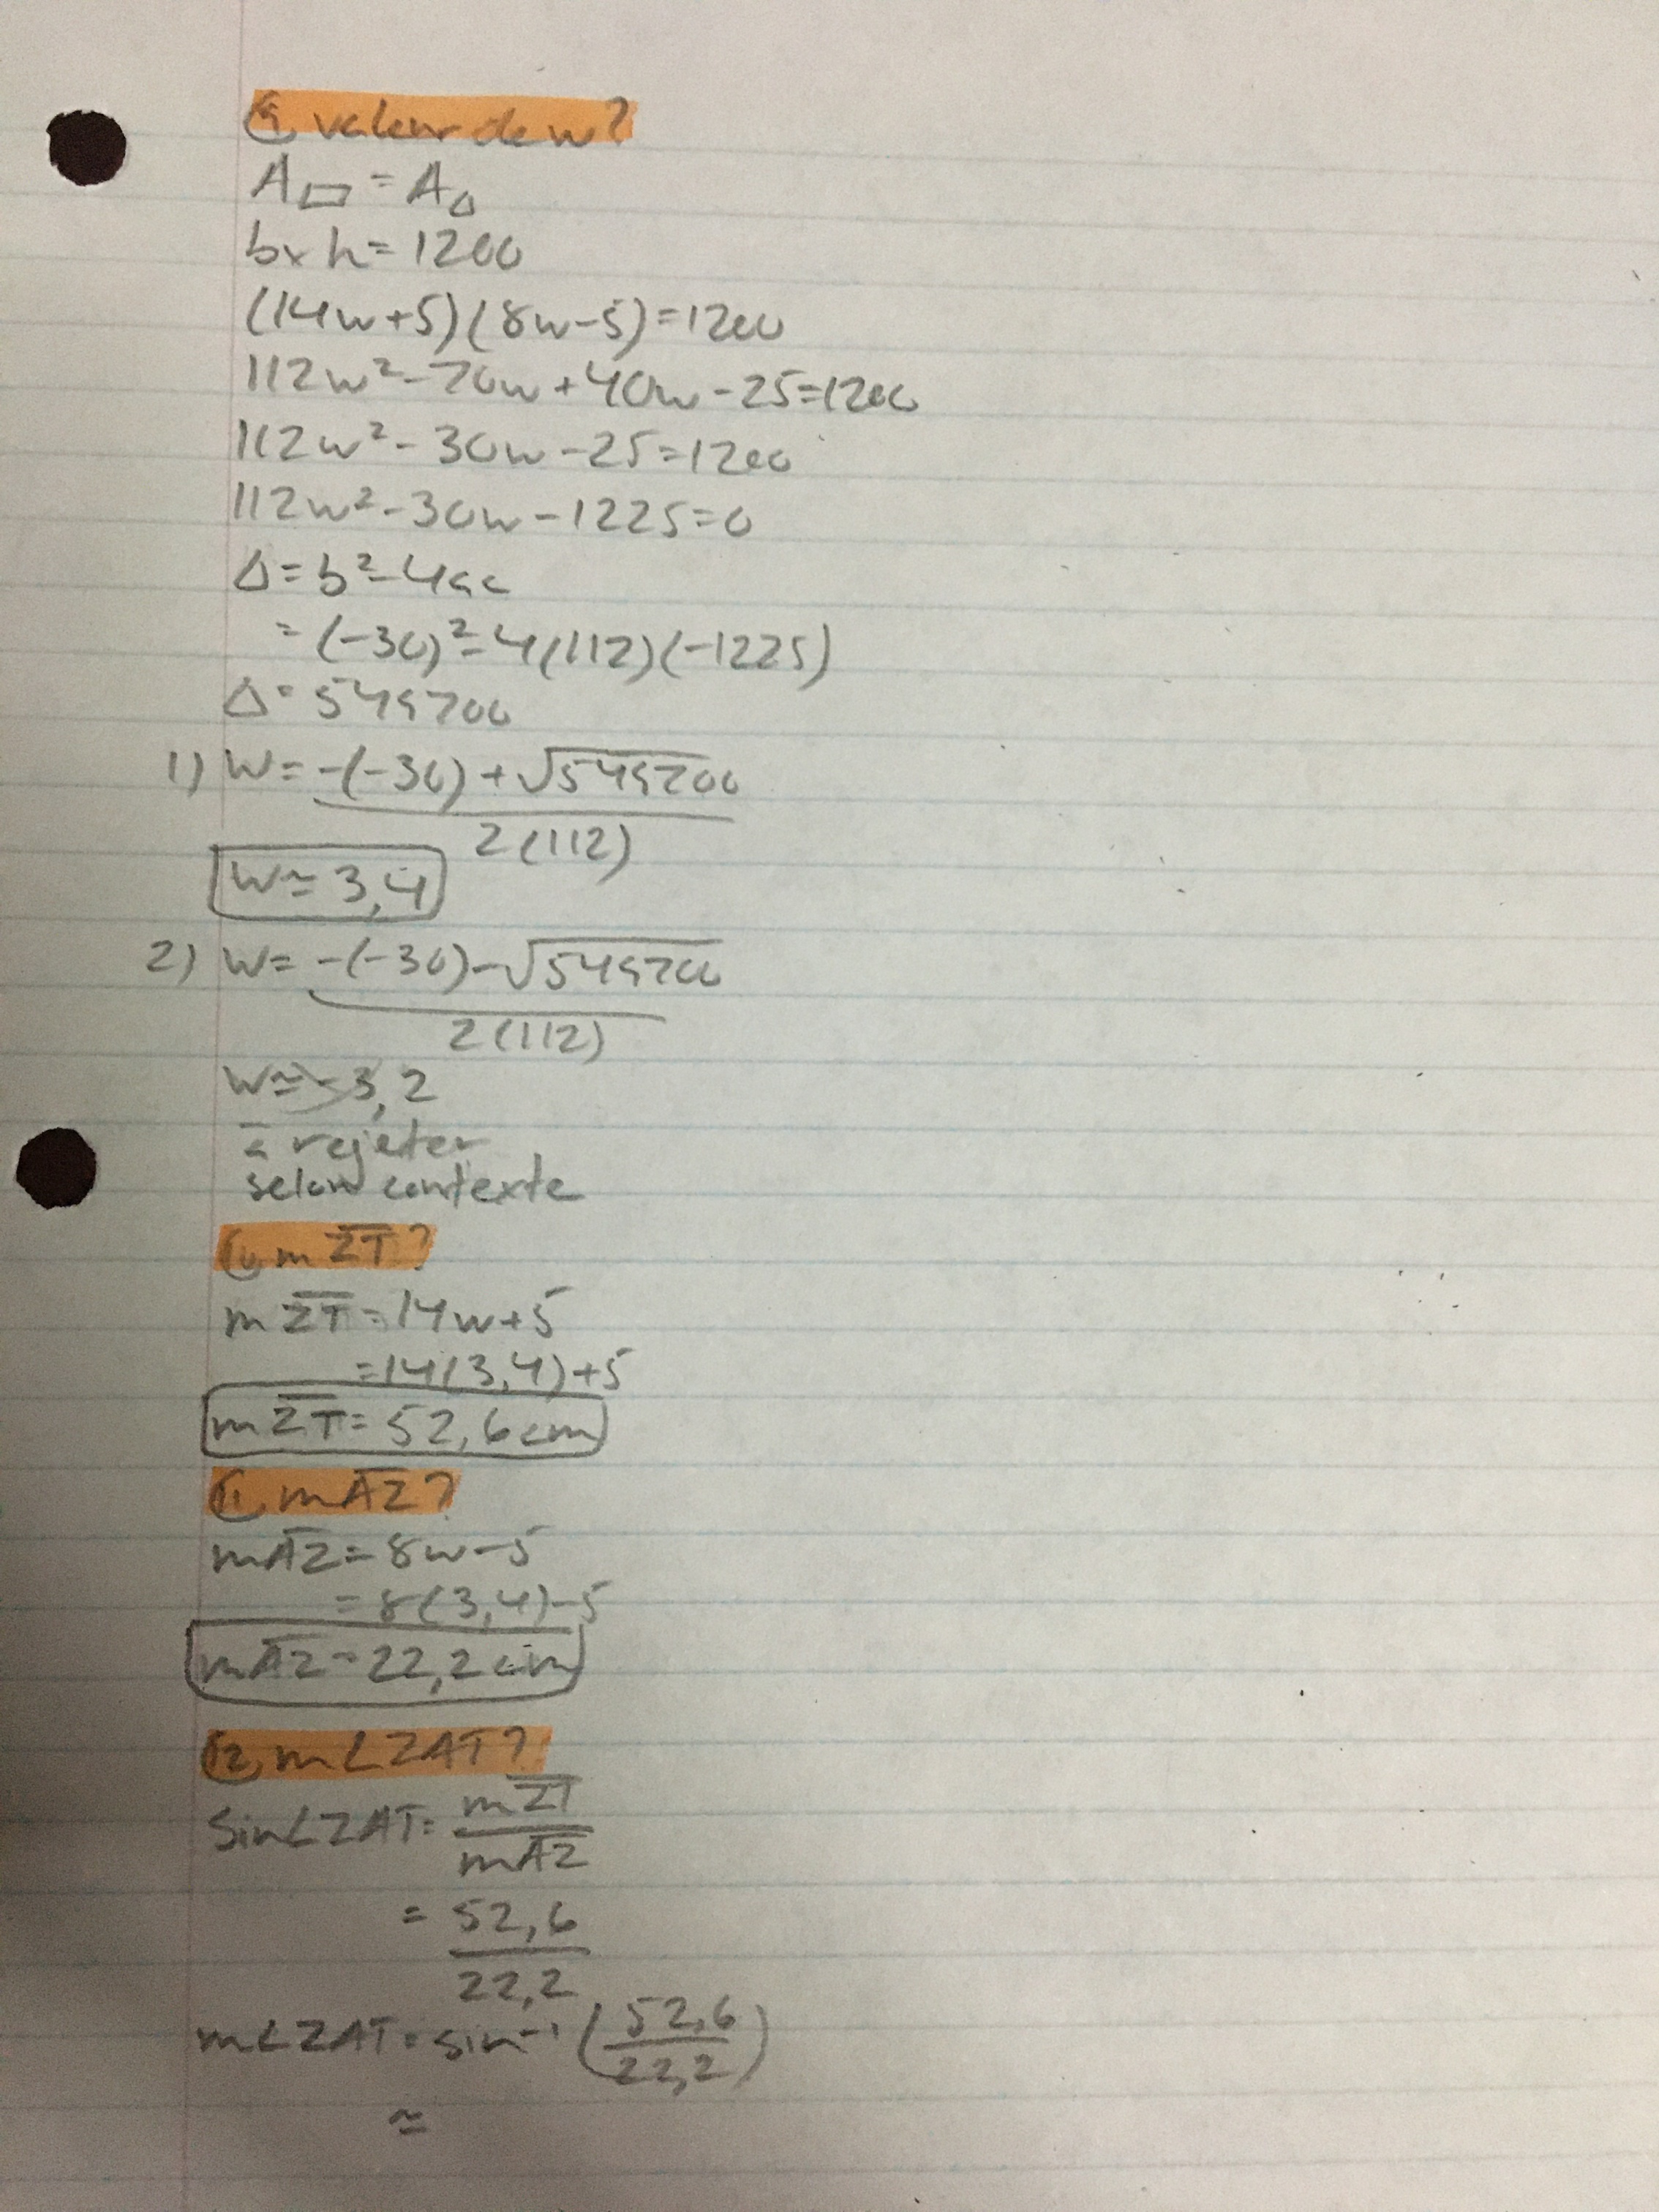 9. valeur de w?
A▭ = A△
b×h=1200
(14w+5)(8w-5)=1200
112w²-70w+40w-25=1200
112w²-30w-25=1200
112w²-30w-1225=0
Δ=b²-4ac
=(-30)²-4(112)(-1225)
Δ=549700
1) w= -(-30)+√549700
2(112)
w≃3,4
2) w= -(-30)-√549700
2(112)
w≃-3,2
à rejeter
selon contexte
10. m ZT?
m ZT=14w+5
=14(3,4)+5
m ZT=52,6cm
11. m AZ?
m AZ=8w-5
=8(3,4)-5
m AZ=22,2cm
12. m∠ZAT?
sin∠ZAT= m ZT
m AZ
= 52,6
22,2
m∠ZAT=sin⁻¹(52,6
22,2)
≃